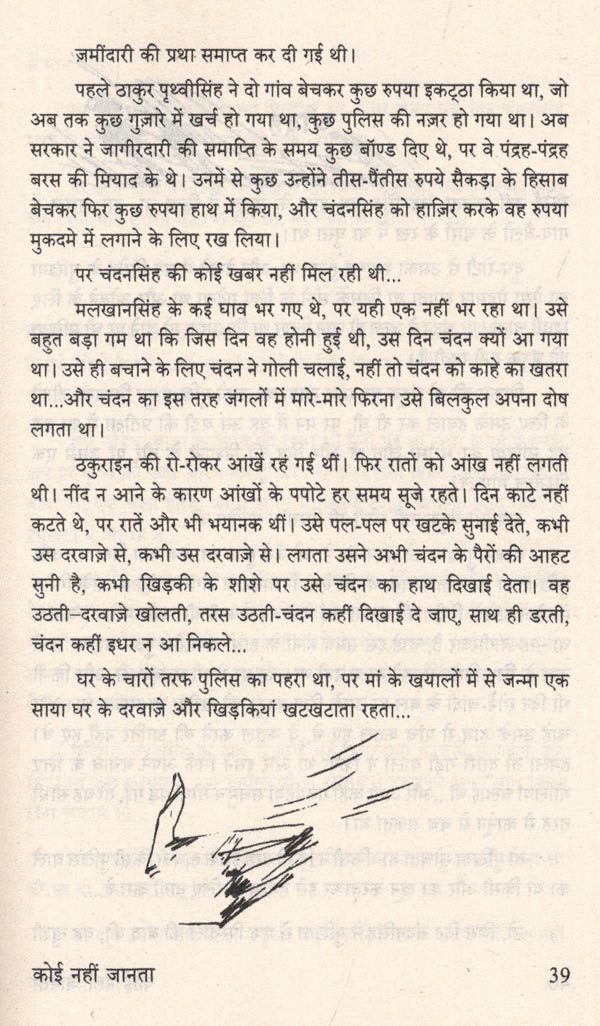 ज़मींदारी की प्रथा समाप्त कर दी गई थी।
पहले ठाकुर पृथ्वीसिंह ने दो गांव बेचकर कुछ रुपया इकट्ठा किया था, जो
अब तक कुछ गुज़ारे में खर्च हो गया था, कुछ पुलिस की नज़र हो गया था। अब
सरकार ने जागीरदारी की समाप्ति के समय कुछ बॉण्ड दिए थे, पर वे पंद्रह-पंद्रह
बरस की मियाद के थे। उनमें से कुछ उन्होंने तीस-पैंतीस रुपये सैकड़ा के हिसाब
बेचकर फिर कुछ रुपया हाथ में किया, और चंदनसिंह को हाज़िर करके वह रुपया
मुकदमे में लगाने के लिए रख लिया।
पर चंदनसिंह की कोई खबर नहीं मिल रही थी...
मलखानसिंह के कई घाव भर गए थे, पर यही एक नहीं भर रहा था। उसे
बहुत बड़ा गम था कि जिस दिन वह होनी हुई थी, उस दिन चंदन क्यों आ गया
था। उसे ही बचाने के लिए चंदन ने गोली चलाई, नहीं तो चंदन को काहे का खतरा
था...और चंदन का इस तरह जंगलों में मारे-मारे फिरना उसे बिलकुल अपना दोष
लगता था।
ठकुराइन की रो-रोकर आंखें रह गई थीं। फिर रातों को आंख नहीं लगती
थी। नींद न आने के कारण आंखों के पपोटे हर समय सूजे रहते। दिन काटे नहीं
कटते थे, पर रातें और भी भयानक थीं। उसे पल-पल पर खटके सुनाई देते, कभी
उस दरवाज़े से, कभी उस दरवाज़े से। लगता उसने अभी चंदन के पैरों की आहट
सुनी है, कभी खिड़की के शीशे पर उसे चंदन का हाथ दिखाई देता। वह
उठती-दरवाज़े खोलती, तरस उठती-चंदन कहीं दिखाई दे जाए, साथ ही डरती,
चंदन कहीं इधर न आ निकले...
घर के चारों तरफ पुलिस का पहरा था, पर मां के खयालों में से जन्मा एक
साया घर के दरवाज़े और खिड़कियां खटखटाता रहता...
कोई नहीं जानता
39